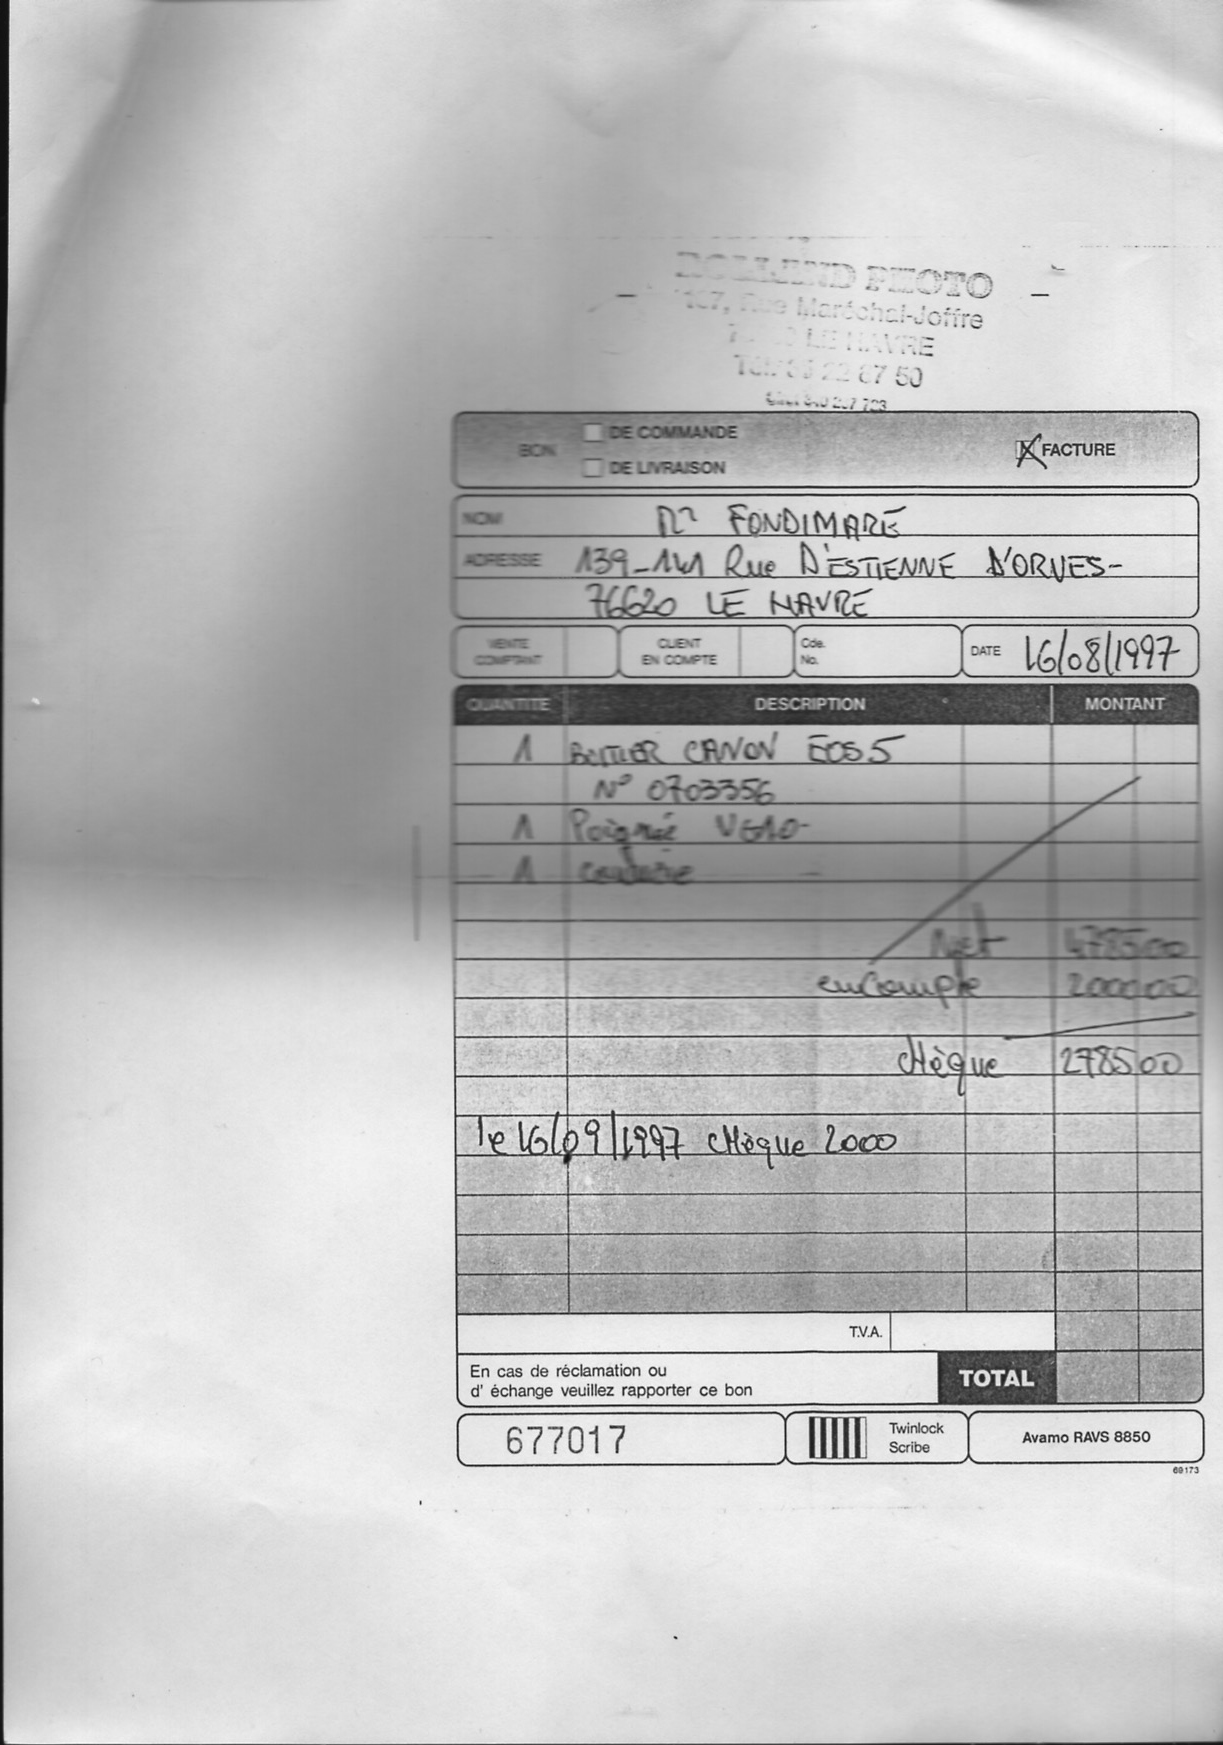 PHOTO
Rue Maréchal-Joffre
LE HAVRE
22 87 50
BON
DE COMMANDE
DE LIVRAISON
FACTURE
NOM Mr FONDIMARE
ADRESSE 139-141 Rue D'ESTIENNE D'ORVES-
76620 LE HAVRE
VENTE COMPTANT
CLIENT EN COMPTE
Cde. No.
DATE 16/08/1997
QUANTITE DESCRIPTION MONTANT
1 BOITIER CANON EOS 5
N° 0703356
1 Poignée VG10-
1
Net 4785 00
en Compte 2000 00
chèque 2785 00
le 16/09/1997 chèque 2000
T.V.A.
En cas de réclamation ou
d' échange veuillez rapporter ce bon
TOTAL
677017
Twinlock
Scribe
Avamo RAVS 8850
69173